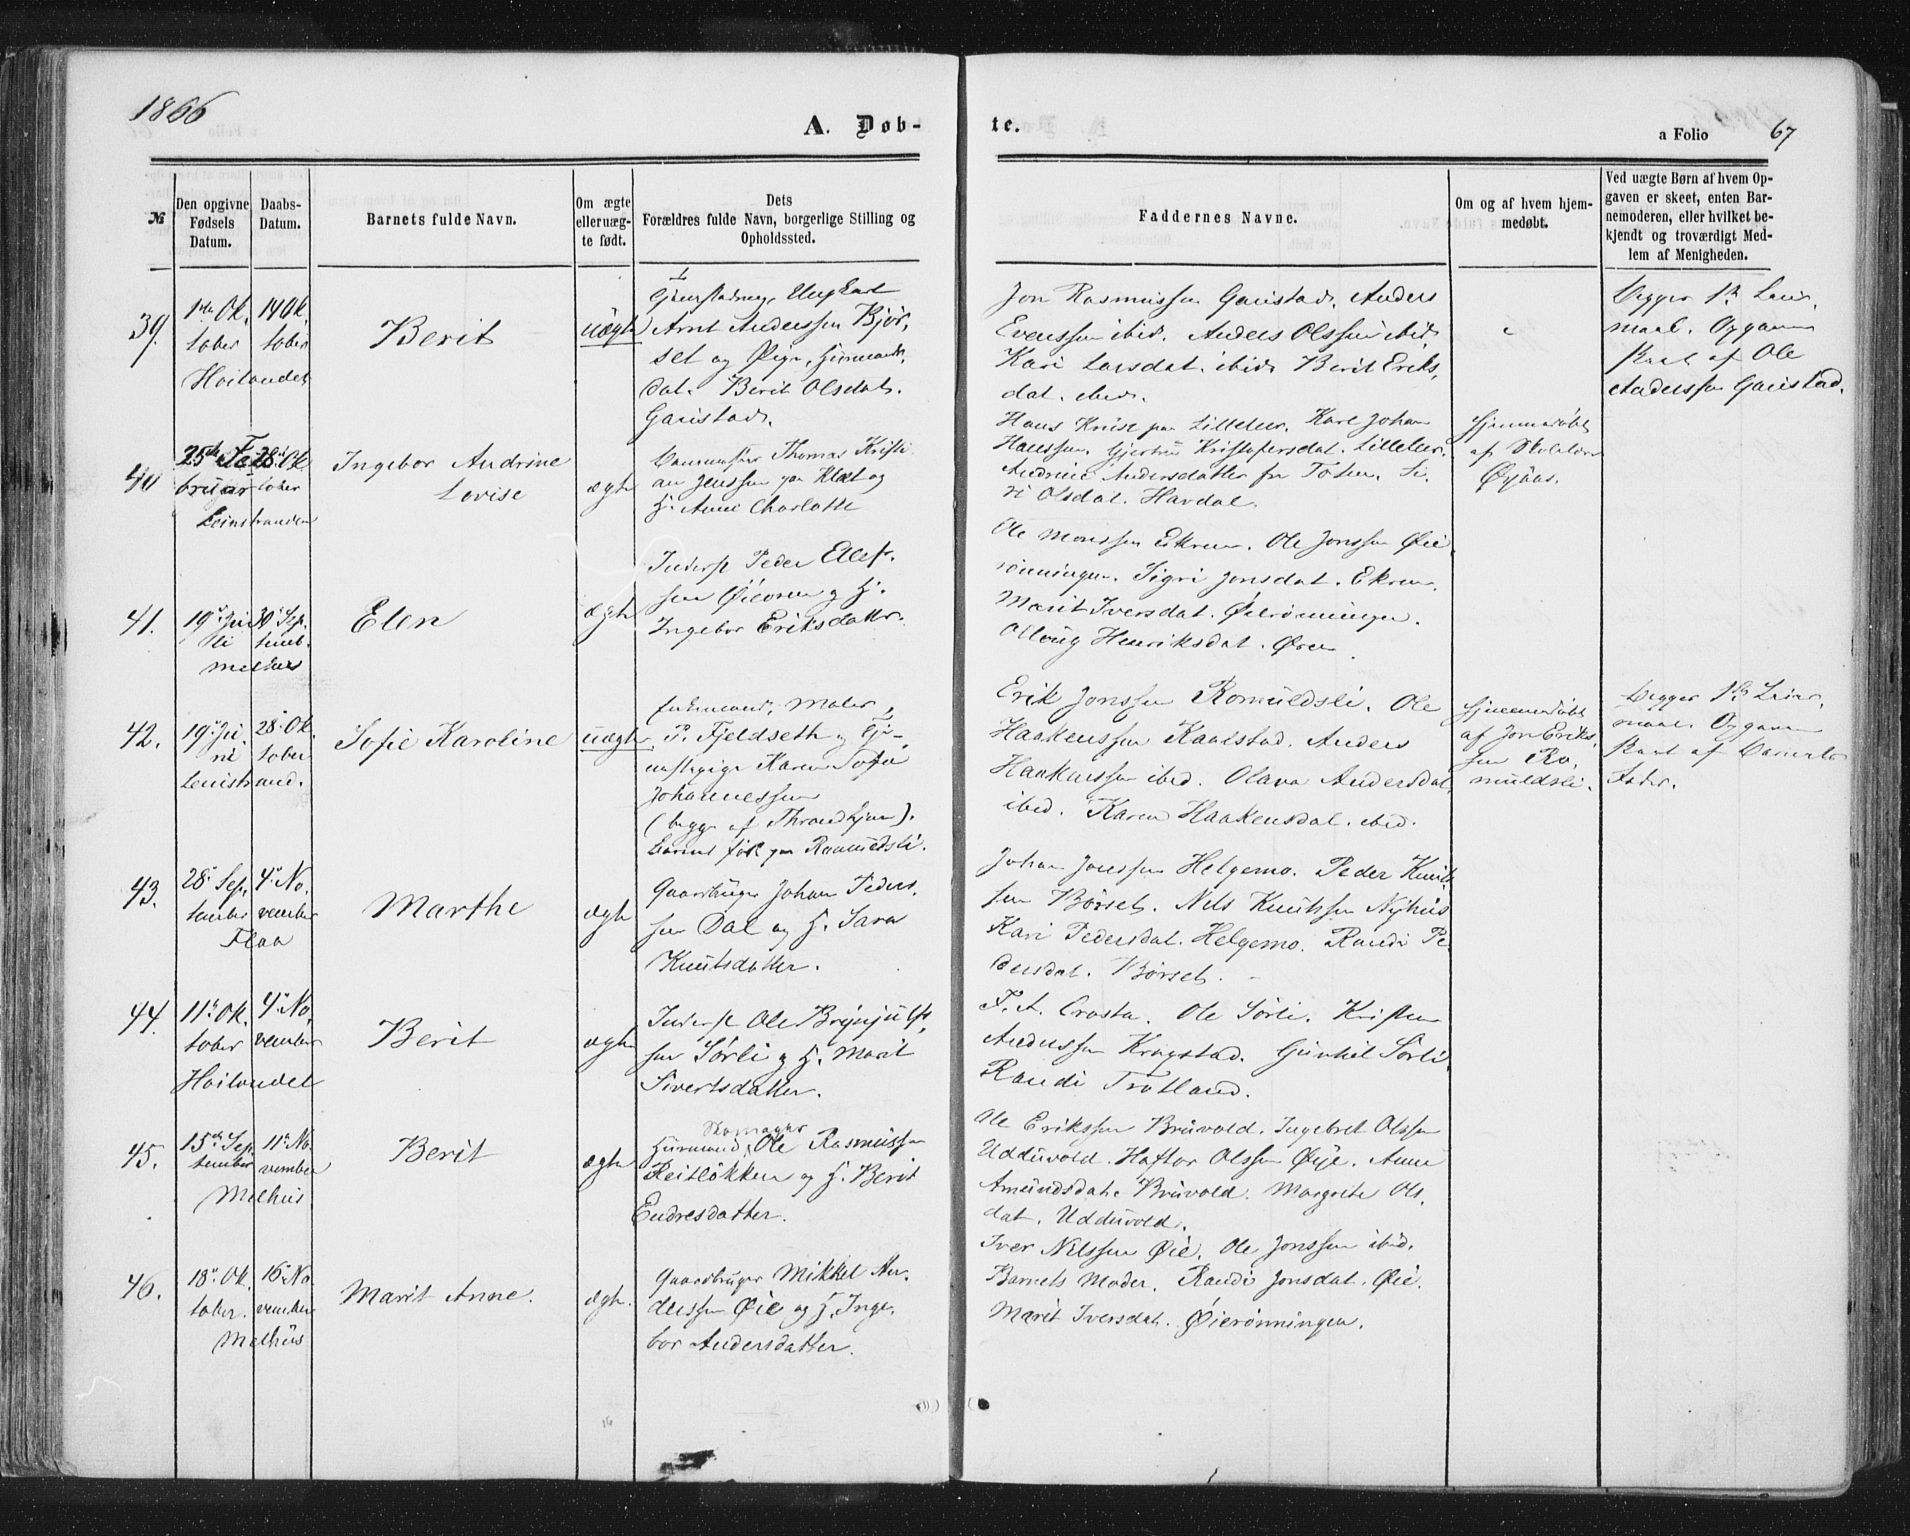 1866
A. Døb-
te.
a Folio 67
№
Den opgivne Fødsels Datum.
Daabs-Datum.
Barnets fulde Navn.
Om ægte eller uæg-te født.
Dets Forældres fulde Navn, borgerlige Stilling og Opholdssted.
Faddernes Navne.
Om og af hvem hjem-medøbt.
Ved uægte Børn af hvem Op-gaven er skeet, enten Bar-nemoderen, eller hvilket be-kjendt og troværdigt Med-lem af Menigheden.
39.
1ste Ok,
tober
Hoilandet
14 Ok,
tober
Berit
uægte
Ungkarl
Arnt Anderssen Bjør,
set og Pige,
dat. Berit Olsdat.
Gaustad.
Jon Rasmussen Gaustad. Anders
Evenssen ibid. Anders Olssen ibid.
Kari Larsdat. ibid. Berit Eriks,
dat. ibid.
Begges 1ste Leier,
maal. Opgaven
skeet af Ole
Anderssen Gaustad.
40
25de Fe
bruar
Leinstranden
28 Ok
tober
Ingebor Andrine
Lovise
ægte
Thomas Kristi
an Jenssen paa Klæt og
H. Anne Charlotte
Hans paa Lilleler. Karl Johan
Hanssen. Gjertru Kristofersdat. Lilleler.
Andrine Andersdatter fra Toten. Si,
ri Olsdat. Havdal.
Hjemmedøbt
af Skolelærer
Øyaas.
41.
19 Ju
li
Melhus
30 Sep.
temb.
Elen
ægte
Inderst Peder Ellefs.
sen Øieøren og H.
Ingebor Eriksdatter.
Ole Monssen Ekren. Ole Jonssen Øie
rönningen. Sigri Jonsdat. Ekren.
Marit Iversdat. Øierönningen.
Olloug Henriksdat. Øren.
42.
19 Ju,
ni
Leinstrand.
28 Ok.
tober
Sofie Karoline
uægte
Enkemand, Maler,
P. Fjeldseth og Tje-
nestepige Karen Sofie
Johannessen
(begge af Throndhjem).
Barnet født paa Romuldsli.
Erik Jonssen Romuldsli. Ole
Haakenssen Kaalstad. Anders
Haakenssen ibid. Olava Andersdat.
ibid. Karen Haakensdat. ibid.
Hjemmedøbt
af Jon Eriks,
sen Ro,
muldsli.
Begges 1ste Leier,
maal. Opgaven
skeet af Barnets
Fader.
43.
28 Sep,
tember
Flaa
4 No,
vember
Marthe
ægte
Gaardbruger Johan Peders,
sen Dal og H. Sara
Knutsdatter.
Johan Jonssen Helgemo. Peder Knut
sen Børset. Nels Knutssen Nyhus
Kari Pedersdat. Helgemo. Randi Pe
dersdat. Børset.
44.
11 Ok.
tober
Hoilandet
4 No,
vember
Berit
ægte
Inderst Ole Brynjulfs,
sen Sørli og H. Marit
Sivertsdatter.
F. A. Crosta. Ole Sørli. Kristen
Anderssen Krogstad. Gunhil Sørli.
Randi Trotland.
45.
15de Sep,
tember
Melhus
11 No
vember
Berit
ægte
Skomager
Huusmand, Ole Rasmussen
Reitløkken og H. Berit
Endresdatter.
Ole Erikssen Bruvold. Ingebret Olssen
Udduvold. Haftor Olssen Øie. Anne
Amundsdat. Bruvold. Margrete Ols.
dat. Udduvold.
46.
18 Ok.
tober.
Melhus
16 No
vember
Marit Anne.
ægte.
Gaardbruger Mikkel An,
derssen Øie og H. Inge,
bor Andersdatter.
Iver Nelssen Øie. Ole Jonssen ibid.
Barnets Moder. Randi Jonsdat. Øie.
Marit Iversdat. Øierönningen.